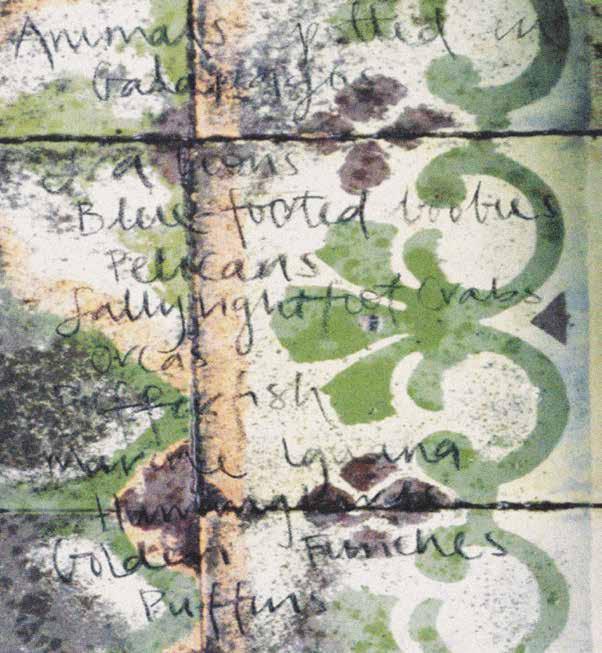 Animals spotted in
Galapagos
Sea lions
Blue-footed boobies
Pelicans
Sally lightfoot Crabs
Orcas
Marine Iguana
Hummingbirds
Golden Finches
Puffins